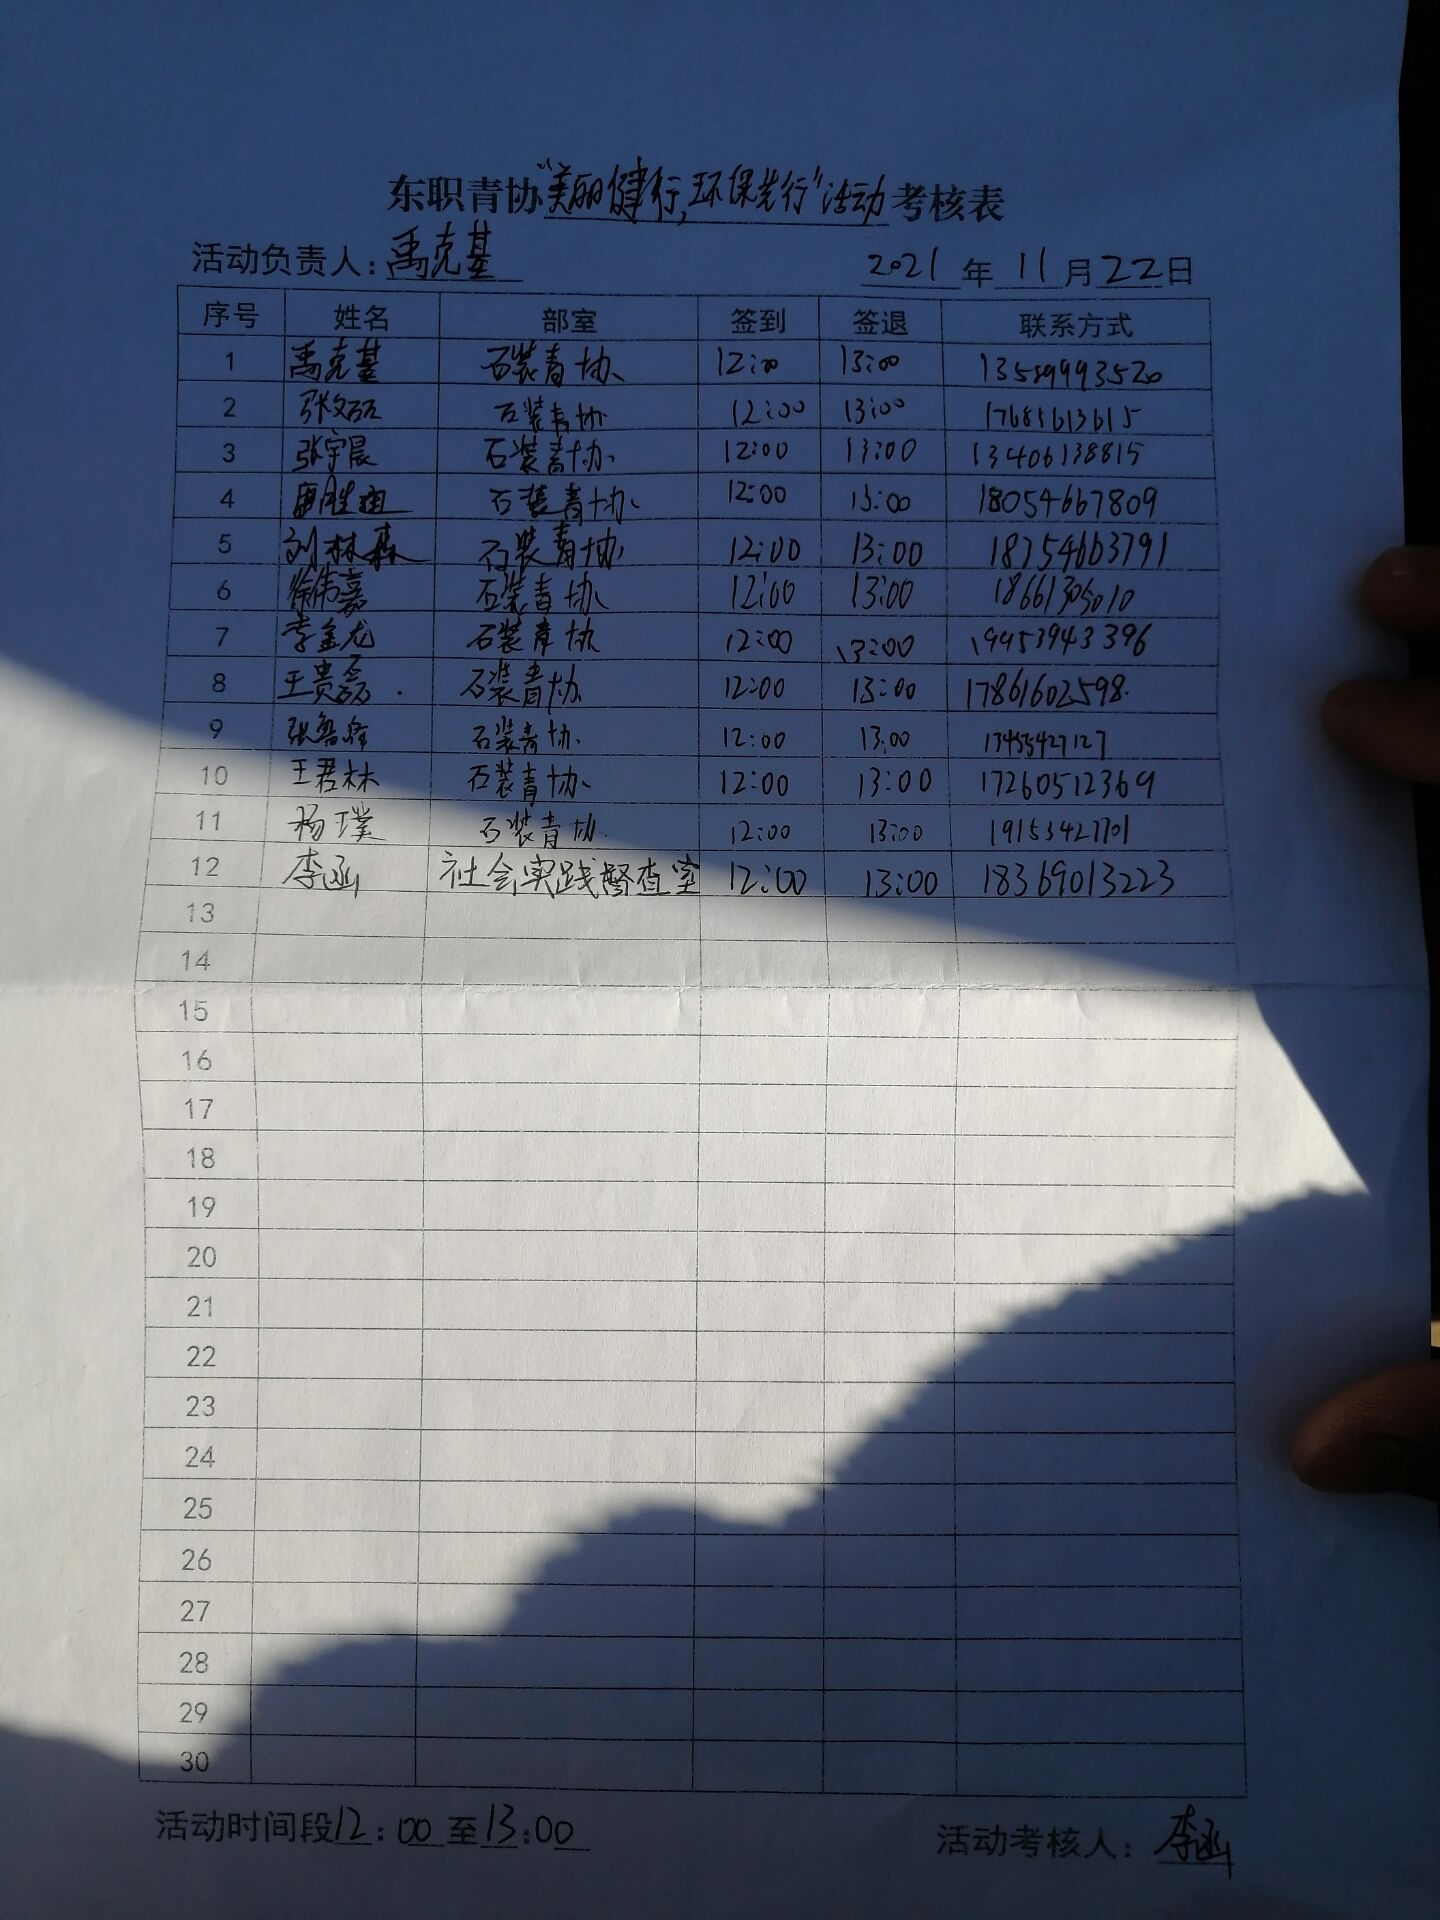 东职青协“美丽健行,环保先行”活动考核表
活动负责人:禹克基 2021年11月22日
序号 姓名 部室 签到 签退 联系方式
1 禹克基 石装青协 12:00 13:00 13589993520
2 张文硕 石装青协 12:00 13:00 17685613615
3 张宇晨 石装青协 12:00 13:00 13406138815
4 石装青协 12:00 13:00 18054667809
5 刘林森 石装青协 12:00 13:00 18754663791
6 徐伟嘉 石装青协 12:00 13:00 18661305010
7 李金龙 石装青协 12:00 13:00 19953943396
8 王贵磊 石装青协 12:00 13:00 17861602598
9 张鲁峰 石装青协 12:00 13:00 13455427127
10 王君林 石装青协 12:00 13:00 17260512369
11 杨璞 石装青协 12:00 13:00 19153427701
12 李函 社会实践督查室 12:00 13:00 18369013223
13
14
15
16
17
18
19
20
21
22
23
24
25
26
27
28
29
30
活动时间段12:00至13:00 活动考核人:李函